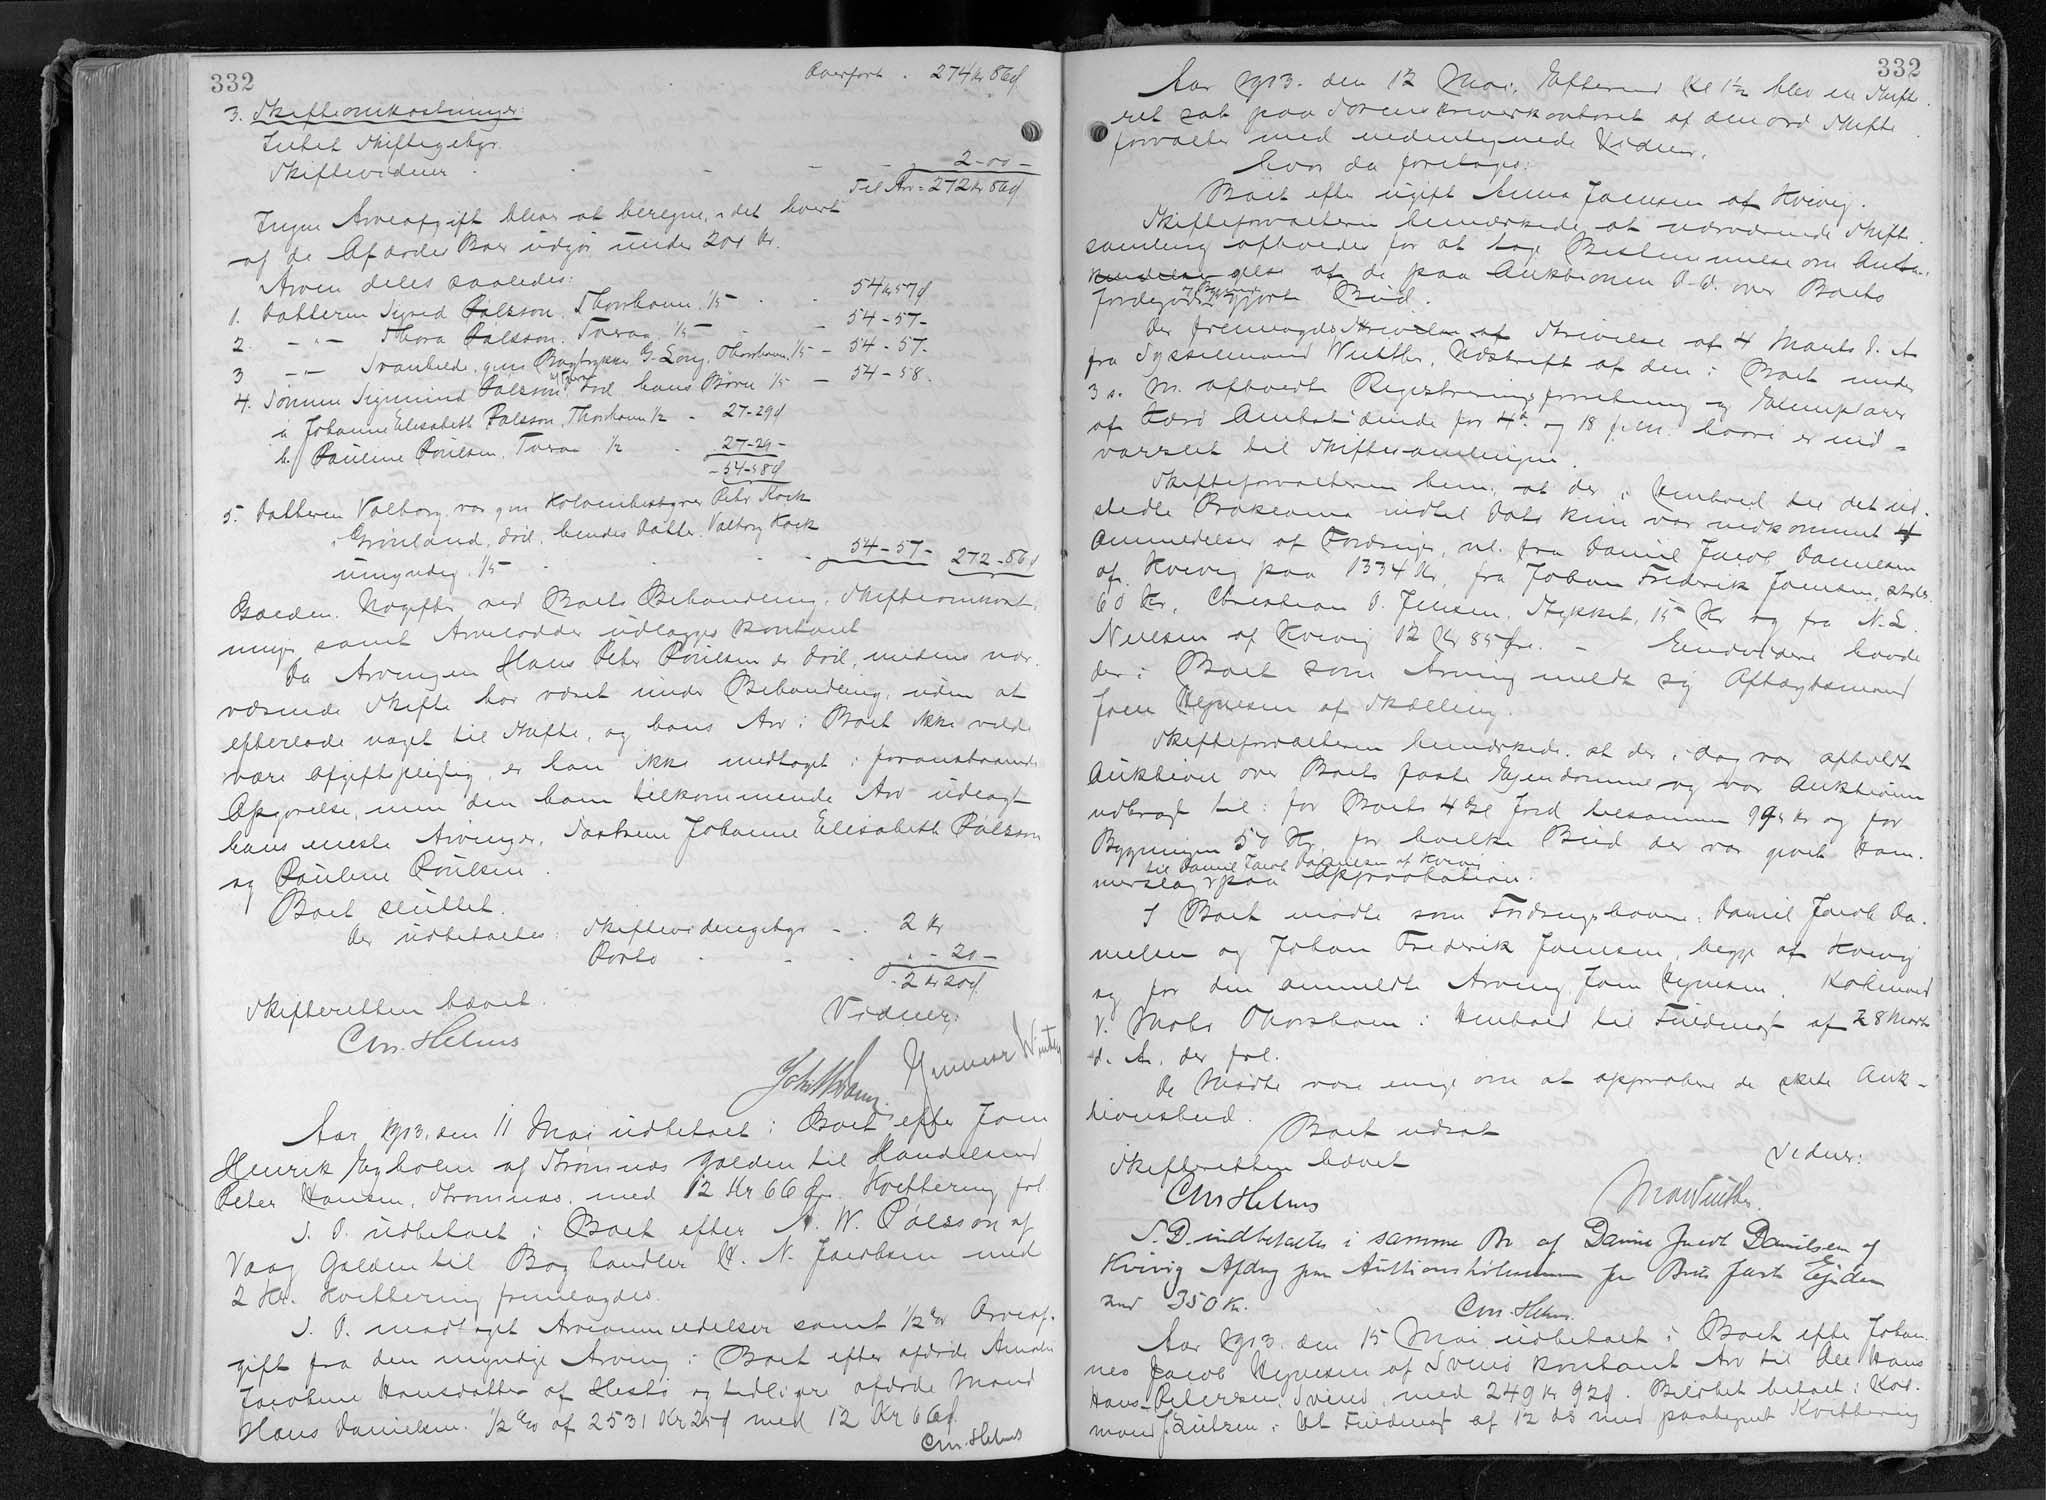 332
Overført . 274 Kr 86 ø
3. Skifteomkostninger:
Intet Skiftegebyr.
Skiftevidner . 2-00-
Til Arv - 272 Kr 86 ø
Ingen Arveafgift bliver at beregne, idet hvert
af de Afdødes Boer udgør under 200 Kr.
Arven deles saaledes:
1. Datteren Sigrid Pálsson, Thorshavn 1/5 . . 54 Kr 57 ø
2. -"- Thora Pálsson, Tveraa 1/5 - 54-57-
3 -"- Svanhilde, gm. Bogtrykker G. Long, Thorshavn, 1/5 - 54-57-
4. Sønnen Sigmund Pálsson, død, hans Børn 1/5 - 54-58.
a Johanne Elisabeth Pálsson, Thorshavn 1/2 - 27-29 ø
b. Pauline Poulsen, Tveraa 1/2 . 27-29-
- 54-58 ø
5. Datteren Valborg, var gm Kolonibestyrer Petr Kock
i Grønland, død, hendes Datter Valborg Kock
umyndig. 1/5 . . 54-57- 272-86 ø
Gælden. Udgifter ved Boets Behandling, Skifteomkost-
ninger, samt Arvelodder udlægges kontant
Da Arvingen Hans Peter Poulsen er død, medens nær-
værende Skifte har været under Behandling, uden at
efterlade noget til Skifte, og hans Arv i Boet ikke vilde
være afgiftspligtig, er han ikke medtaget i foranstaaende
Opgørelse, men den ham tilkommende Arv udlagt
hans eneste Arvinger, Søstrene Johanne Elisabeth Pálsson
og Pauline Poulsen.
Boet sluttet.
Der udbetaltes: Skiftevidnegebyr - . 2 Kr
Porto . - . " - 20 -
- 2 Kr 20 ø.
Skifteretten hævet.
Vidner:
Chr. Helms
Gunnar
Aar 1913, den 11 Mai udbetalt i Boet efter Joen
Henrik Egholm af Strømnæs Gælden til Handelsmd
Peter Hansen, Strømnæs, med 12 Kr 66 Øre. Kvittering fol.
S. D. udbetalt i Boet efter N. W. Pálsson af
Vaag Gælden til Boghandler H. N. Jacobsen med
2 Kr. Kvittering fremlagdes.
S. D. modtaget Arveanmeldelser samt 1/2 % Arveaf-
gift fra den myndige Arving i Boet efter afdøde Amalie
Jacobine Hansdatter af Hestø og tidligere afdøde Mand
Hans Danielsen. 1/2 % af 2531 Kr 25 ø med 12 Kr 66 ø
Chr. Helms
332
Aar 1913. den 12 Mai, Eftermd Kl 1½ blev en Skifte-
ret sat paa Sorenskriverkontoret af den ord Skifte-
forvalter med nedentegnede Vidner,
hvor da foretages:
Boet efter ugift Anna Joensen af Kvivig.
Skifteforvalteren bemærkede, at nærværende Skifte-
samling afholdes for at tage Bestemmelse om Anta-
gelse af de paa Auktionen D. D. over Boets
Jordegods og Bygning gjorte Bud.
Der fremlagdes Skrivelse af 4 Marts d. A.
fra Sysselmand Winther, Udskrift af den i Boet under
3 s. M. afholdte Registreringsforretning og Exemplarer
af Færø Amtstidende for 4de og 18 f. M. hvori er ind-
varslet til Skiftesamlingen.
Skifteforvalteren bem. at der i Henhold til det ud-
stedte Proklama indtil Dato kun var indkommet 4
Anmeldelser af Fordringer, nl. fra Daniel Jacob Danielsen
af Kvivig paa 1334 Kr, fra Johan Frederik Joensen, stds.
60 Kr, Christian D. Jensen, Stykket, 15 Kr og fra N. L.
Nielsen af Kvivig 12 Kr 85 Øre. - Endvidere havde
der i Boet som Arving meldt sig Aftægtsmand
Joen Hejnesen af Skælling.
Skifteforvalteren bemærkede, at der i Dag var afholdt
Auktion over Boets faste Ejendomme og var Auktionen
udbragt til: for Boets 4 Gl Jord tilsammen kr og for
Bygningen 50 Kr, for hvilke Bud der var givet Ham-
merslag til Daniel Jacob Danielsen af Kvivig paa Approbation.
I Boet mødte som Fordringshavere: Daniel Jacob Da-
nielsen og Johan Frederik Joensen, begge af Kvivig
og for den anmeldte Arving Joen Hejnesen,
Thorshavn i Henhold til Fuldmagt af 28 Marts
d. A. der fol.
De Mødte vare enige om at approbere de skete Auk-
tionsbud.
Boet udsat
Skifteretten hævet
Vidner:
Chr Helms
S. D. indbetaltes i samme Bo af Daniel Jacob Danielsen af
Kvivig Afdrag paa Auktionskøbesummen for Boets faste Ejendom
med 350 Kr.
Chr. Helms.
Aar 1913. den 15 Mai udbetalt i Boet efter Johan-
nes Jacob Hejnesen af Svinø kontant Arv til Ole Hans
Hans-Petersen, Svinø, med 249 Kr 92 ø. Beløbet betalt i Køb-
mand Poulsen i Flt Fuldmagt af 12 ds med paategnet Kvittering